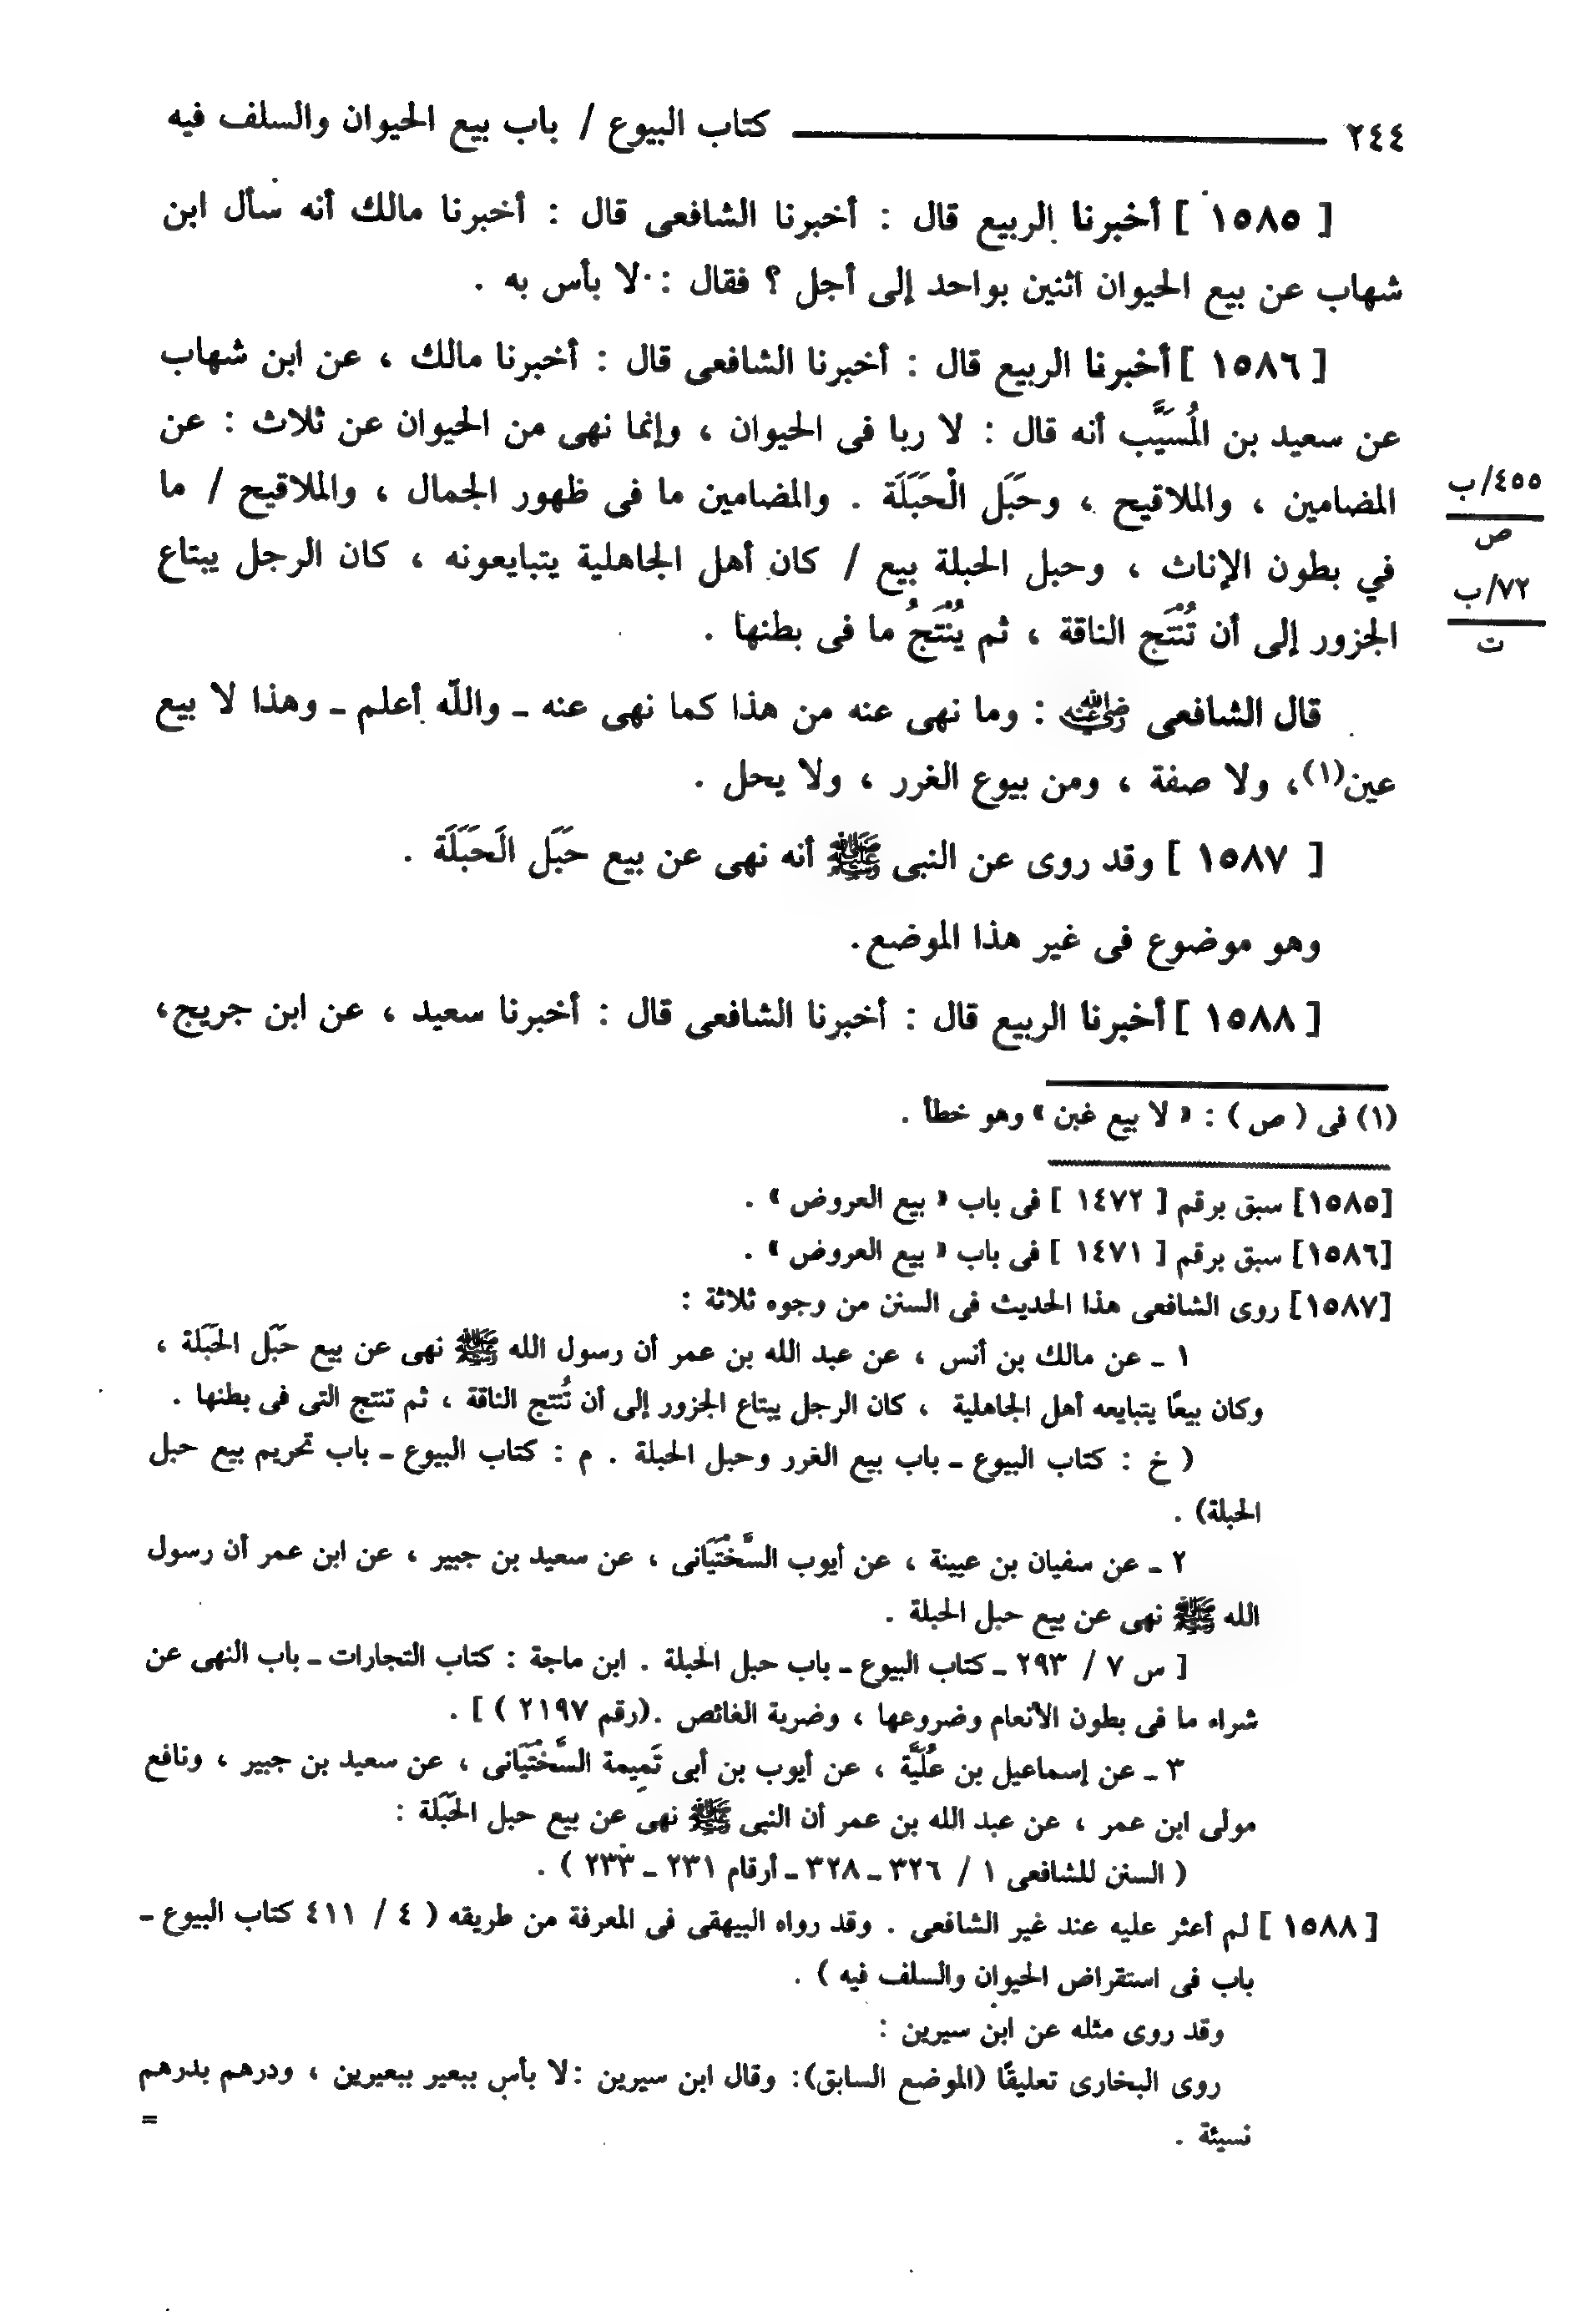 ٢٤٤ ــــــــــــ كتاب البيوع / باب بيع الحيوان والسلف فيه
[ ١٥٨٥ ] أخبرنا الربيع قال : أخبرنا الشافعى قال : أخبرنا مالك أنه سأل ابن
شهاب عن بيع الحيوان اثنين بواحد إلى أجل ؟ فقال : لا بأس به .
[ ١٥٨٦ ] أخبرنا الربيع قال : أخبرنا الشافعى قال : أخبرنا مالك ، عن ابن شهاب
عن سعيد بن المُسَيَّب أنه قال : لا ربا فى الحيوان ، وإنما نهى من الحيوان عن ثلاث : عن
المضامين ، والملاقيح ، وحَبَل الْحَبَلَة . والمضامين ما فى ظهور الجمال ، والملاقيح / ما
٤٥٥/ب
ص
في بطون الإناث ، وحبل الحبلة بيع / كان أهل الجاهلية يتبايعونه ، كان الرجل يبتاع
٧٢/ب
ت
الجزور إلى أن تُنْتَج الناقة ، ثم يُنْتَجُ ما فى بطنها .
قال الشافعى رضي الله عنه : وما نهى عنه من هذا كما نهى عنه ـ والله أعلم ـ وهذا لا بيع
عين(١)، ولا صفة ، ومن بيوع الغرر ، ولا يحل .
[ ١٥٨٧ ] وقد روى عن النبى ﷺ أنه نهى عن بيع حَبَل الَحَبَلَة .
وهو موضوع فى غير هذا الموضع.
[ ١٥٨٨ ] أخبرنا الربيع قال : أخبرنا الشافعى قال : أخبرنا سعيد ، عن ابن جريج،
(١) فى ( ص ) : « لا بيع غبن » وهو خطأ .
[١٥٨٥] سبق برقم [ ١٤٧٢ ] فى باب « بيع العروض » .
[١٥٨٦] سبق برقم [ ١٤٧١ ] فى باب « بيع العروض » .
[١٥٨٧] روى الشافعى هذا الحديث فى السنن من وجوه ثلاثة :
١ ـ عن مالك بن أنس ، عن عبد الله بن عمر أن رسول الله ﷺ نهى عن بيع حَبَل الحَبَلة ،
وكان بيعًا يتبايعه أهل الجاهلية ، كان الرجل يبتاع الجزور إلى أن تُنتج الناقة ، ثم تنتج التى فى بطنها .
( خ : كتاب البيوع ـ باب بيع الغرر وحبل الحبلة . م : كتاب البيوع ـ باب تحريم بيع حبل
الحبلة) .
٢ ـ عن سفيان بن عيينة ، عن أيوب السَّخْتَيَانى ، عن سعيد بن جبير ، عن ابن عمر أن رسول
الله ﷺ نهى عن بيع حبل الحبلة .
[ س ٧ / ٢٩٣ ـ كتاب البيوع ـ باب حبل الحبلة . ابن ماجة : كتاب التجارات ـ باب النهى عن
شراء ما فى بطون الأنعام وضروعها ، وضربة الغائص .(رقم ٢١٩٧ ) ] .
٣ ـ عن إسماعيل بن عُلَيَّة ، عن أيوب بن أبى تَمِيمة السَّخْتَيَانى ، عن سعيد بن جبير ، ونافع
مولى ابن عمر ، عن عبد الله بن عمر أن النبى ﷺ نهى عن بيع حبل الحَبَلة :
( السنن للشافعى ١ / ٣٢٦ ـ ٣٢٨ ـ أرقام ٢٣١ ـ ٢٣٣ ) .
[ ١٥٨٨ ] لم أعثر عليه عند غير الشافعى . وقد رواه البيهقى فى المعرفة من طريقه ( ٤ / ٤١١ كتاب البيوع ـ
باب فى استقراض الحيوان والسلف فيه ) .
وقد روى مثله عن ابن سيرين :
روى البخارى تعليقًا (الموضع السابق): وقال ابن سيرين :لا بأس ببعير ببعيرين ، ودرهم بدرهم
نسيئة .
=